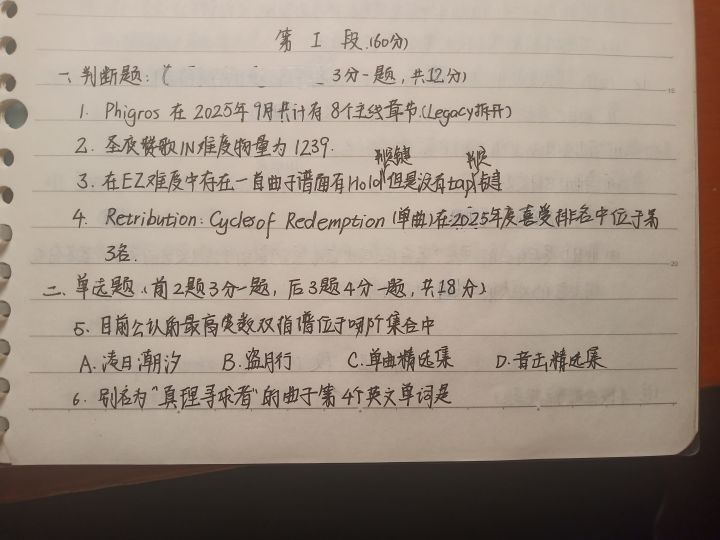 第 I 段.(60分)
一、判断题:( 3分一题,共12分)
1. Phigros 在 2025年9月共计有8个主线章节.(Legacy拆开)
2. 圣夜赞歌IN难度物量为1239.
3. 在EZ难度中存在一首曲子谱面有Hold判定键但是没有tap判定键
4. Retribution:Cycle of Redemption(单曲)在2025年度喜爱排名中位于第
3名.
二、单选题(前2题3分一题,后3题4分一题,共18分)
5. 目前公认的最高定数双指谱位于哪个集合中
A.凌日潮汐 B.盗月行 C.单曲精选集 D.音击精选集
6. 别名为"真理寻求者"的曲子第4个英文单词是